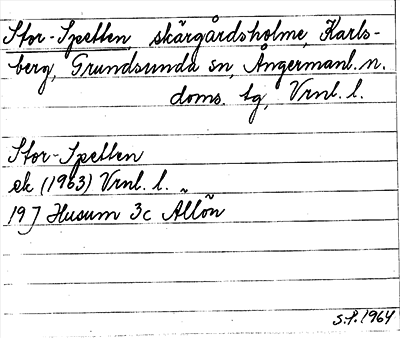 Stor-Spetten, skärgårdsholme, Karls-
berg, Grundsunda sn, Ångermanl. n.
doms. tg, Vrnl. l.
Stor-Spetten
ek (1963) Vrnl. l.
19 J Husum 3c Allön
S.P. 1964